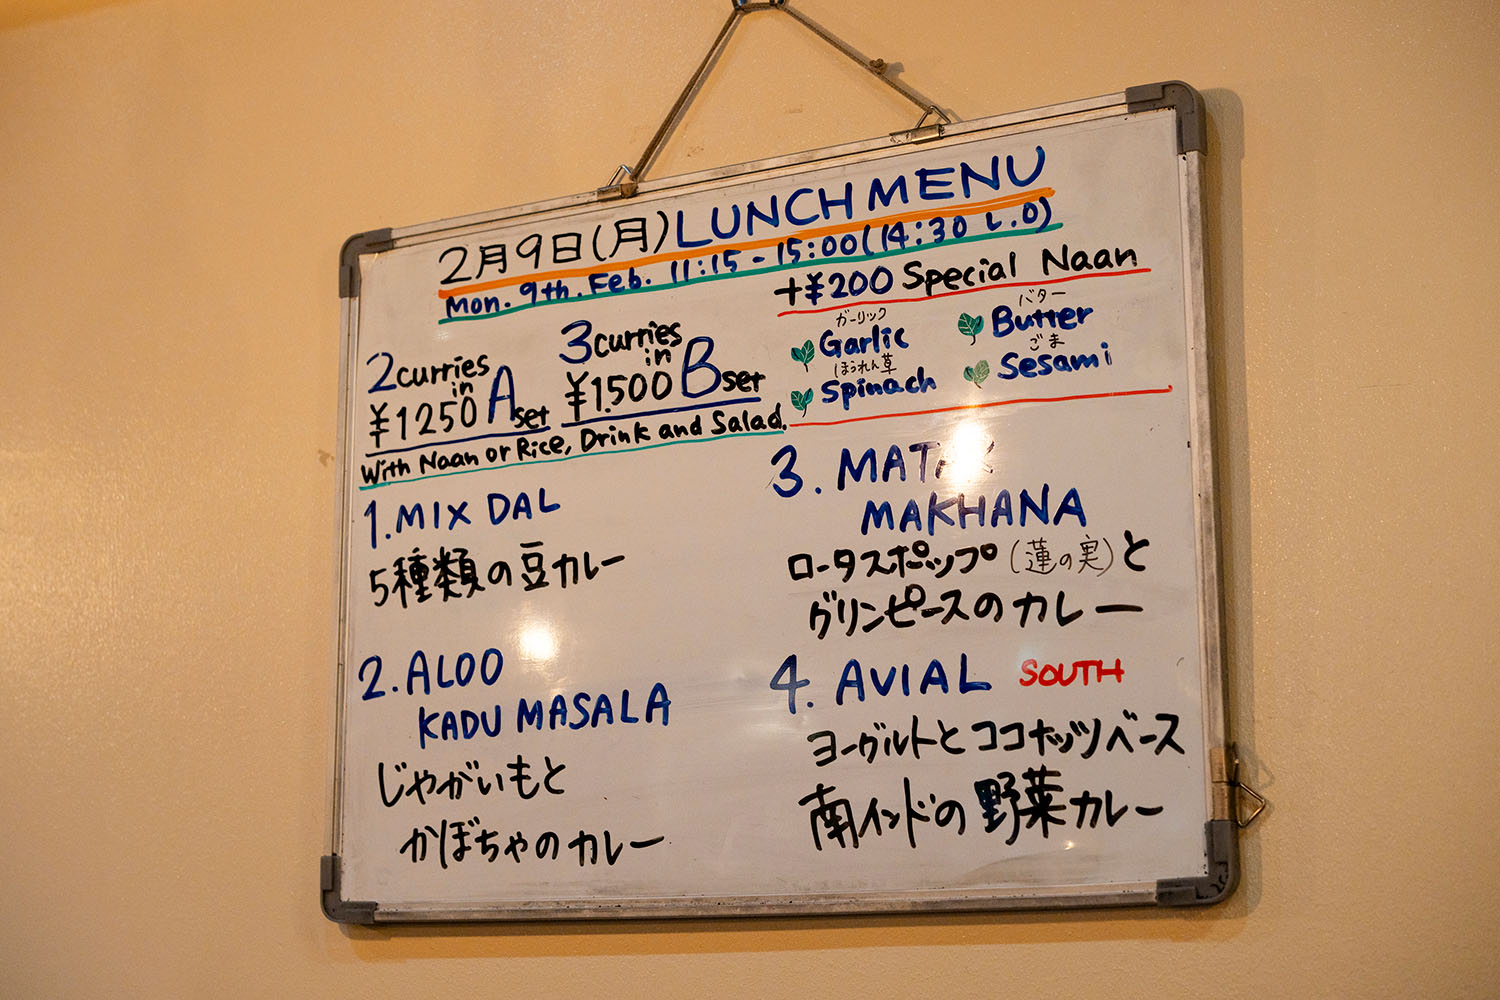 2月9日(月)LUNCH MENU
Mon. 9th. Feb. 11:15-15:00(14:30 L.O)
2curries
in
¥1250 A set
3curries
in
¥1.500 B set
With Naan or Rice, Drink and Salad.
+¥200 Special Naan
ガーリック
Garlic
バター
Butter
ほうれん草
Spinach
ごま
Sesami
1. MIX DAL
5種類の豆カレー
2. ALOO
KADU MASALA
じゃがいもと
かぼちゃのカレー
3.
MAKHANA
ロータスポップ(蓮の実)と
グリンピースのカレー
4. AVIAL SOUTH
ヨーグルトとココナッツベース
南インドの野菜カレー